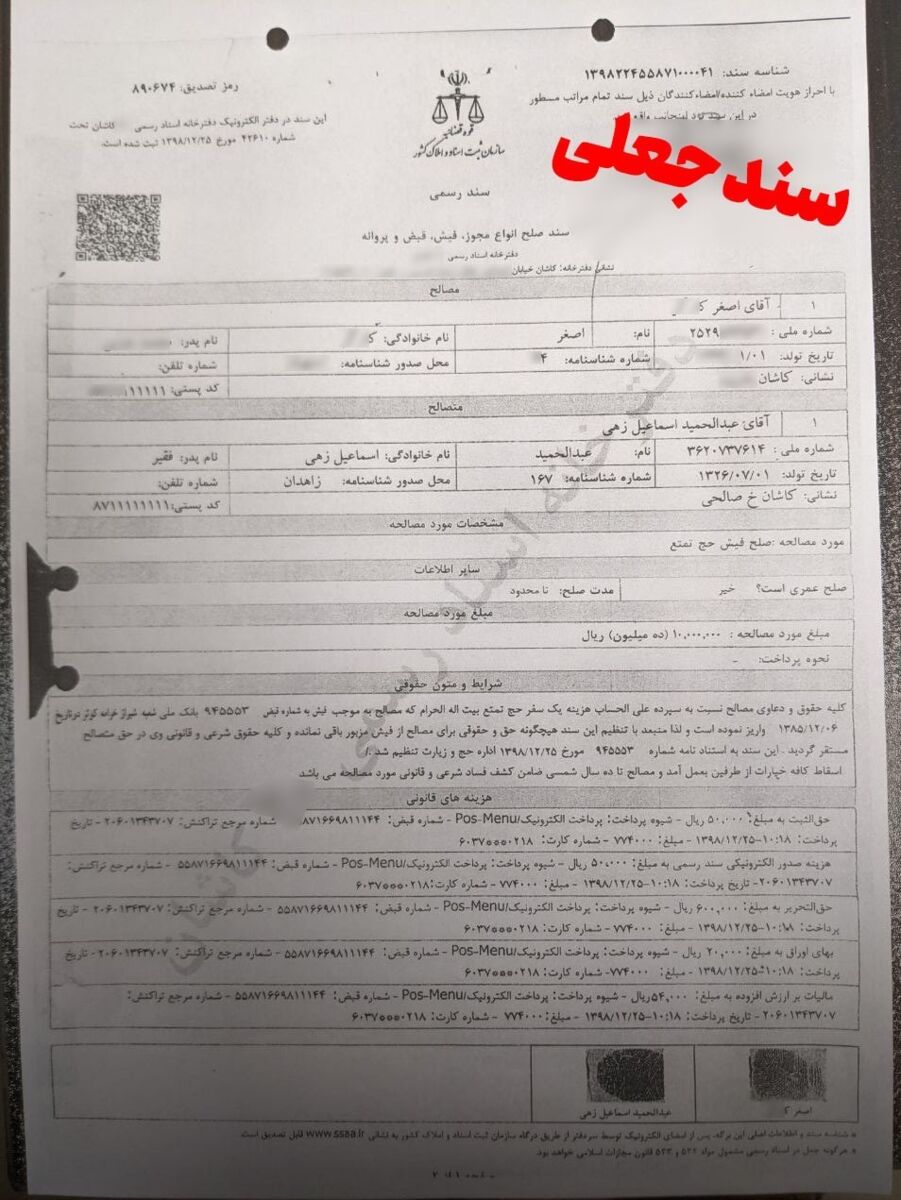 شناسه سند: ۱۳۹۸۲۲۴۵۵۸۷۱۰۰۰۰۴۱
رمز تصدیق: ۸۹۰۶۷۴
با احراز هویت امضاء کننده/امضاءکنندگان ذیل سند تمام مراتب مسطور
در این سند نزد اینجانب
این سند در دفتر الکترونیک دفترخانه اسناد رسمی کاشان تحت
شماره ۴۲۶۱۰ مورخ ۱۳۹۸/۱۲/۲۵ ثبت شده است.
قوه قضائیه
سازمان ثبت اسناد و املاک کشور
سند جعلی
سند رسمی
سند صلح انواع مجوز، فیش، قبض و پروانه
دفترخانه اسناد رسمی
نشانی دفترخانه: کاشان خیابان
مصالح
۱ آقای اصغر ک
شماره ملی: ۲۵۲۹ نام: اصغر نام خانوادگی: ک نام پدر:
تاریخ تولد: ۱/۰۱ شماره شناسنامه: ۴ محل صدور شناسنامه: شماره تلفن:
نشانی: کاشان کد پستی: ۱۱۱۱۱۱
متصالح
۱ آقای عبدالحمید اسماعیل زهی
شماره ملی: ۳۶۲۰۷۳۷۶۱۴ نام: عبدالحمید نام خانوادگی: اسماعیل زهی نام پدر: فقیر
تاریخ تولد: ۱۳۲۶/۰۷/۰۱ شماره شناسنامه: ۱۶۷ محل صدور شناسنامه: زاهدان شماره تلفن:
نشانی: کاشان خ صالحی کد پستی: ۸۷۱۱۱۱۱۱۱۱
مشخصات مورد مصالحه
مورد مصالحه :صلح فیش حج تمتع
سایر اطلاعات
صلح عمری است؟ خیر مدت صلح: نا محدود
مبلغ مورد مصالحه
مبلغ مورد مصالحه : ۱۰,۰۰۰,۰۰۰ (ده میلیون) ریال
نحوه پرداخت: -
شرایط و متون حقوقی
کلیه حقوق و دعاوی مصالح نسبت به سپرده علی الحساب هزینه یک سفر حج تمتع بیت اله الحرام که مصالح به موجب فیش به شماره قبض ۹۴۵۵۵۳ بانک ملی شعبه شیراز خرامه کوثر درتاریخ
۱۳۸۵/۱۲/۰۶ واریز نموده است و لذا منبعد با تنظیم این سند هیچگونه حق و حقوقی برای مصالح از فیش مزبور باقی نمانده و کلیه حقوق شرعی و قانونی وی در حق متصالح
مستقر گردید . این سند به استناد نامه شماره ۹۴۵۵۵۳ مورخ ۱۳۹۸/۱۲/۲۵ اداره حج و زیارت تنظیم شد ./
اسقاط کافه خیارات از طرفین بعمل آمد و مصالح تا ده سال شمسی ضامن کشف فساد شرعی و قانونی مورد مصالحه می باشد
هزینه های قانونی
حق‌الثبت به مبلغ: ۵۰,۰۰۰ ریال - شیوه پرداخت: پرداخت الکترونیک/Pos-Menu - شماره قبض: ۸۷۱۶۶۹۸۱۱۱۴۴ شماره مرجع تراکنش: ۲۰۶۰۱۳۴۳۷۰۷ - تاریخ
پرداخت: ۱۰:۱۸-۱۳۹۸/۱۲/۲۵ - مبلغ: ۷۷۴۰۰۰ - شماره کارت: ۶۰۳۷***۰۲۱۸
هزینه صدور الکترونیکی سند رسمی به مبلغ: ۵۰,۰۰۰ ریال - شیوه پرداخت: پرداخت الکترونیک/Pos-Menu - شماره قبض: ۵۵۸۷۱۶۶۹۸۱۱۱۴۴ - شماره مرجع تراکنش:
۲۰۶۰۱۳۴۳۷۰۷- تاریخ پرداخت: ۱۰:۱۸-۱۳۹۸/۱۲/۲۵ - مبلغ: ۷۷۴۰۰۰ - شماره کارت: ۶۰۳۷***۰۲۱۸
حق‌التحریر به مبلغ: ۶۰۰,۰۰۰ ریال - شیوه پرداخت: پرداخت الکترونیک/Pos-Menu - شماره قبض: ۵۵۸۷۱۶۶۹۸۱۱۱۴۴ - شماره مرجع تراکنش: ۲۰۶۰۱۳۴۳۷۰۷ - تاریخ
پرداخت: ۱۰:۱۸-۱۳۹۸/۱۲/۲۵ - مبلغ: ۷۷۴۰۰۰ - شماره کارت: ۶۰۳۷***۰۲۱۸
بهای اوراق به مبلغ: ۲۰,۰۰۰ ریال - شیوه پرداخت: پرداخت الکترونیک/Pos-Menu - شماره قبض: ۵۵۸۷۱۶۶۹۸۱۱۱۴۴ - شماره مرجع تراکنش: ۲۰۶۰۱۳۴۳۷۰۷ - تاریخ
پرداخت: ۱۰:۱۸-۱۳۹۸/۱۲/۲۵ - مبلغ: ۷۷۴۰۰۰ - شماره کارت: ۶۰۳۷***۰۲۱۸
مالیات بر ارزش افزوده به مبلغ: ۵۴,۰۰۰ ریال - شیوه پرداخت: پرداخت الکترونیک/Pos-Menu - شماره قبض: ۵۵۸۷۱۶۶۹۸۱۱۱۴۴ - شماره مرجع تراکنش:
۲۰۶۰۱۳۴۳۷۰۷- تاریخ پرداخت: ۱۰:۱۸-۱۳۹۸/۱۲/۲۵ - مبلغ: ۷۷۴۰۰۰ - شماره کارت: ۶۰۳۷***۰۲۱۸
اصغر ک
عبدالحمید اسماعیل زهی
* شناسه سند و اطلاعات اصلی این برگه، پس از امضای الکترونیک توسط سردفتر از طریق درگاه سازمان ثبت اسناد و املاک کشور به نشانی www.ssaa.ir قابل تصدیق است
* هرگونه جعل در اسناد رسمی مشمول مواد ۵۲۲ و ۵۲۳ قانون مجازات اسلامی خواهد بود.
دفترخانه اسناد رسمی کاشان